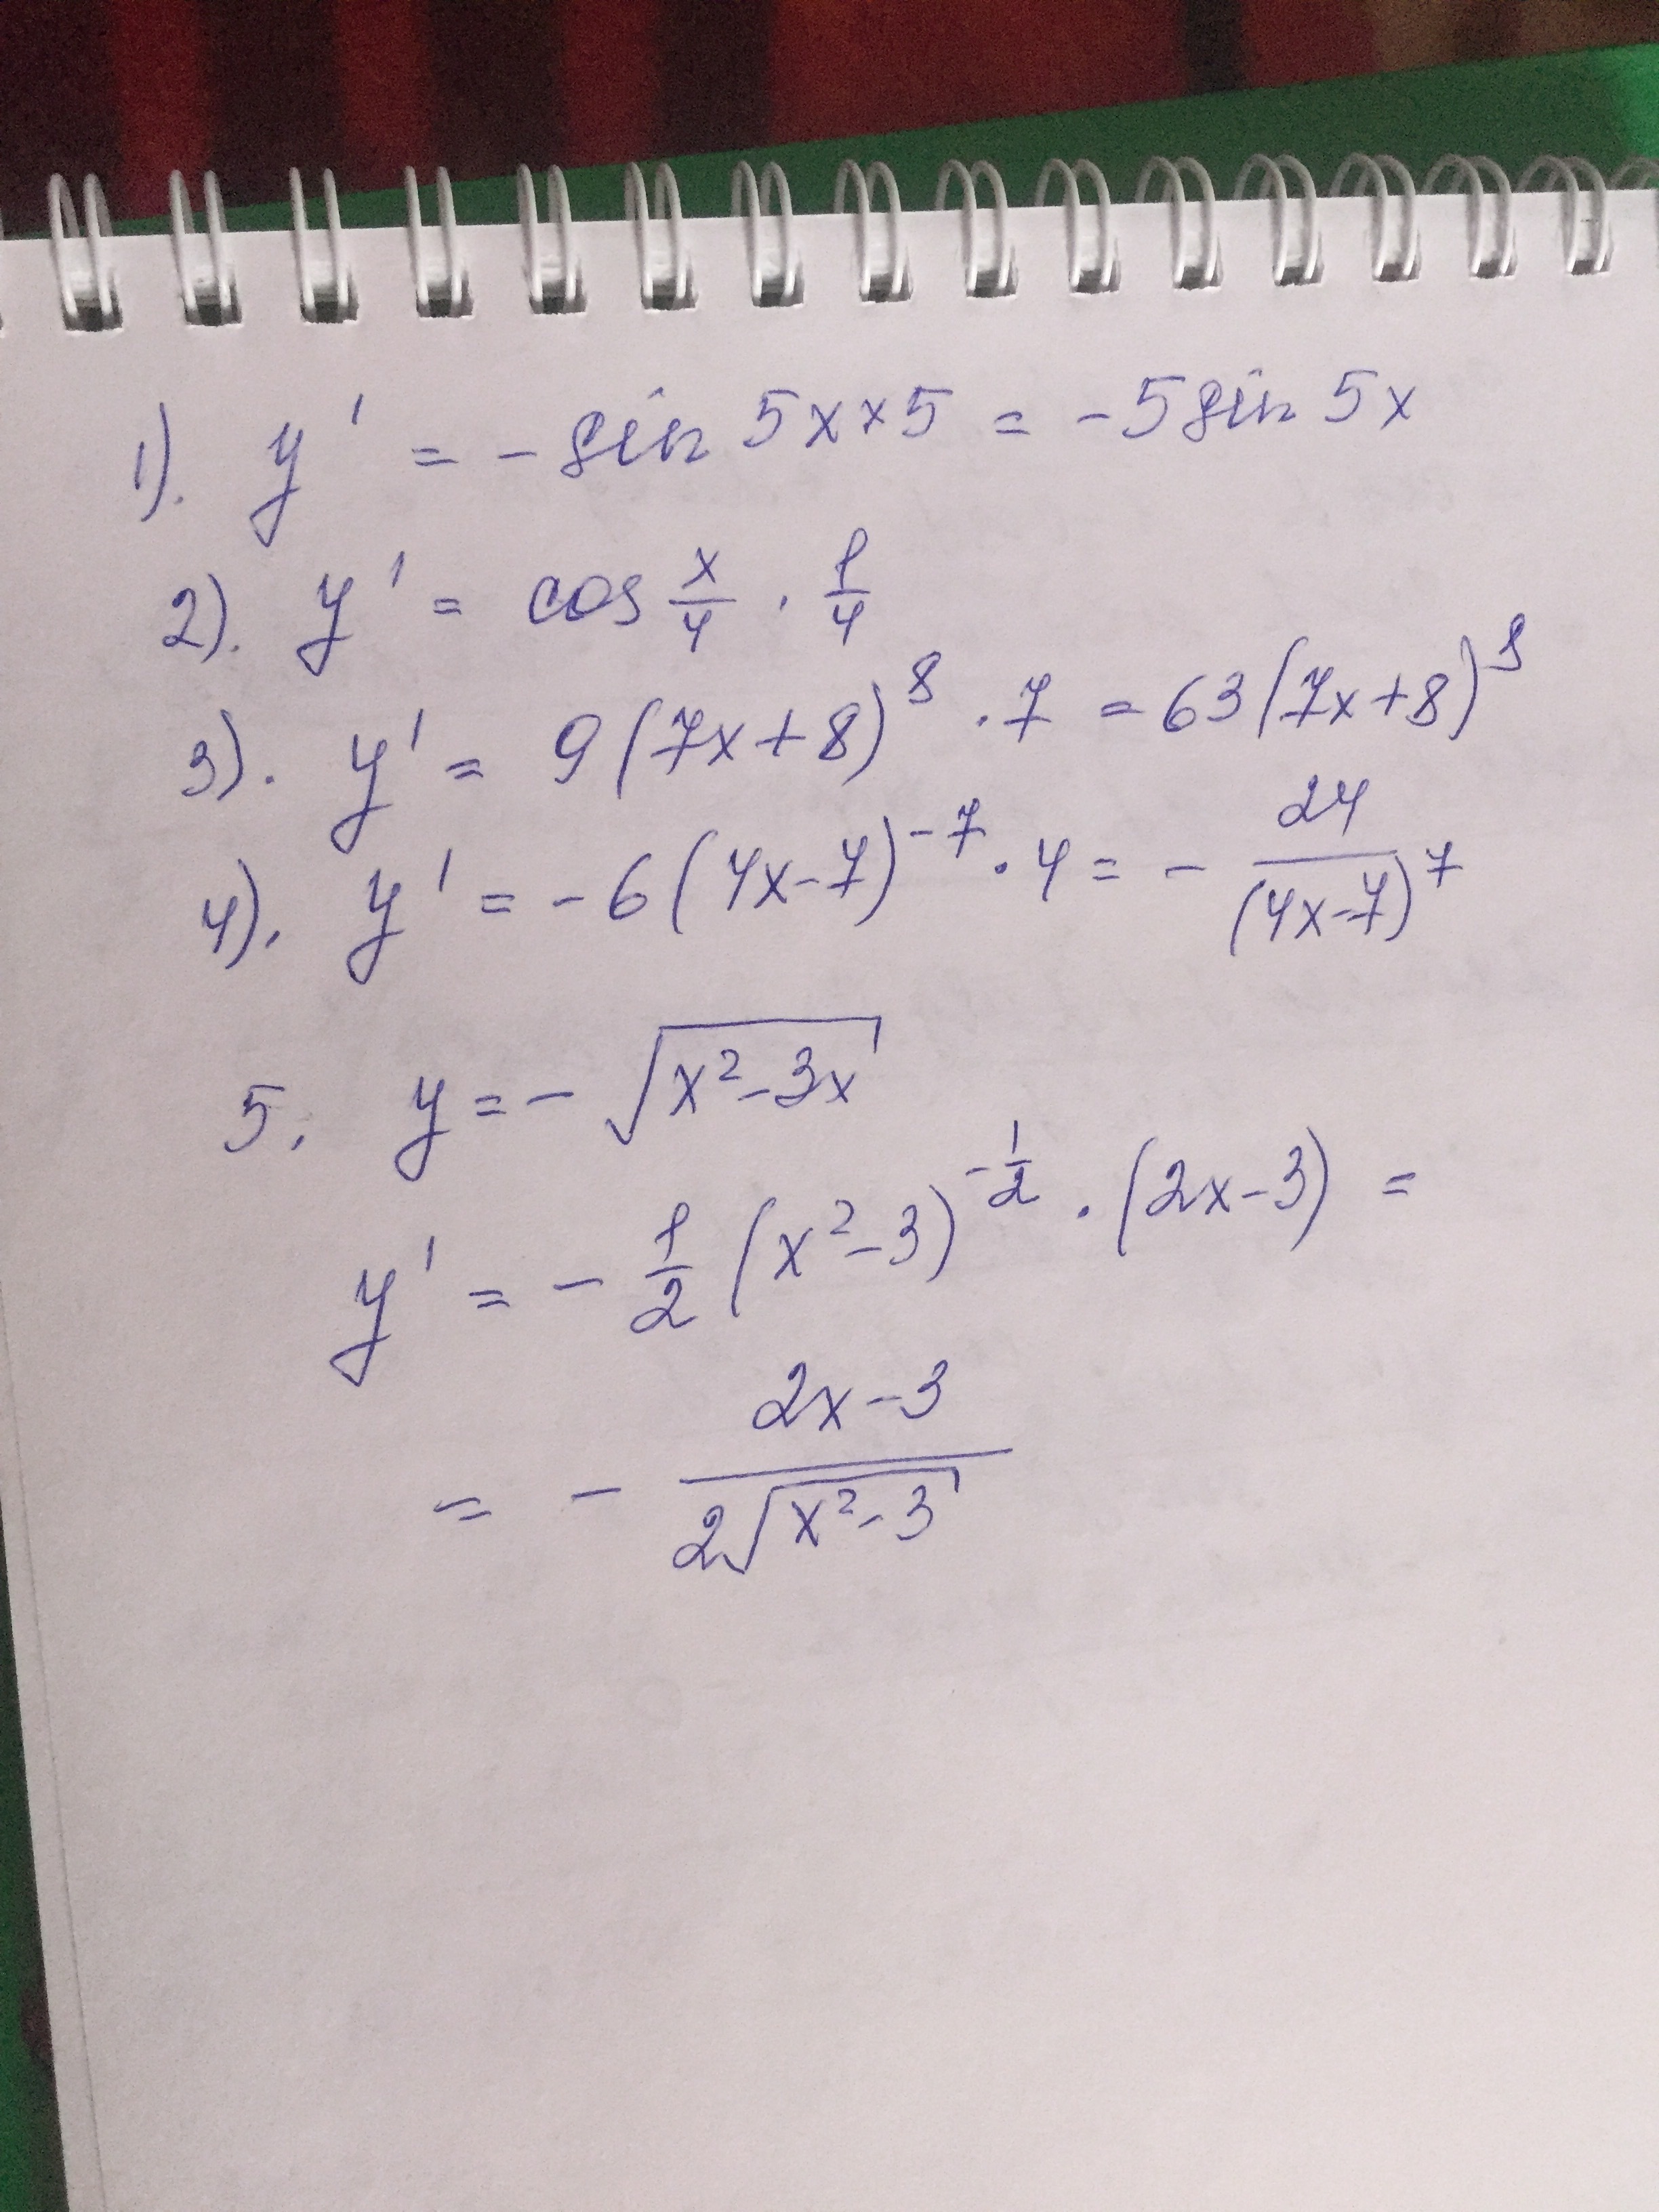 1). y' = - sin 5x × 5 = -5 sin 5x
2). y' = cos x/4 · 1/4
3). y' = 9(7x+8)^8 · 7 = 63(7x+8)^8
4). y' = -6(4x-7)^-7 · 4 = - 24/(4x-7)^7
5. y = - √(x²-3x)
y' = - 1/2 (x²-3)^-1/2 · (2x-3) =
= - (2x-3)/(2√(x²-3))